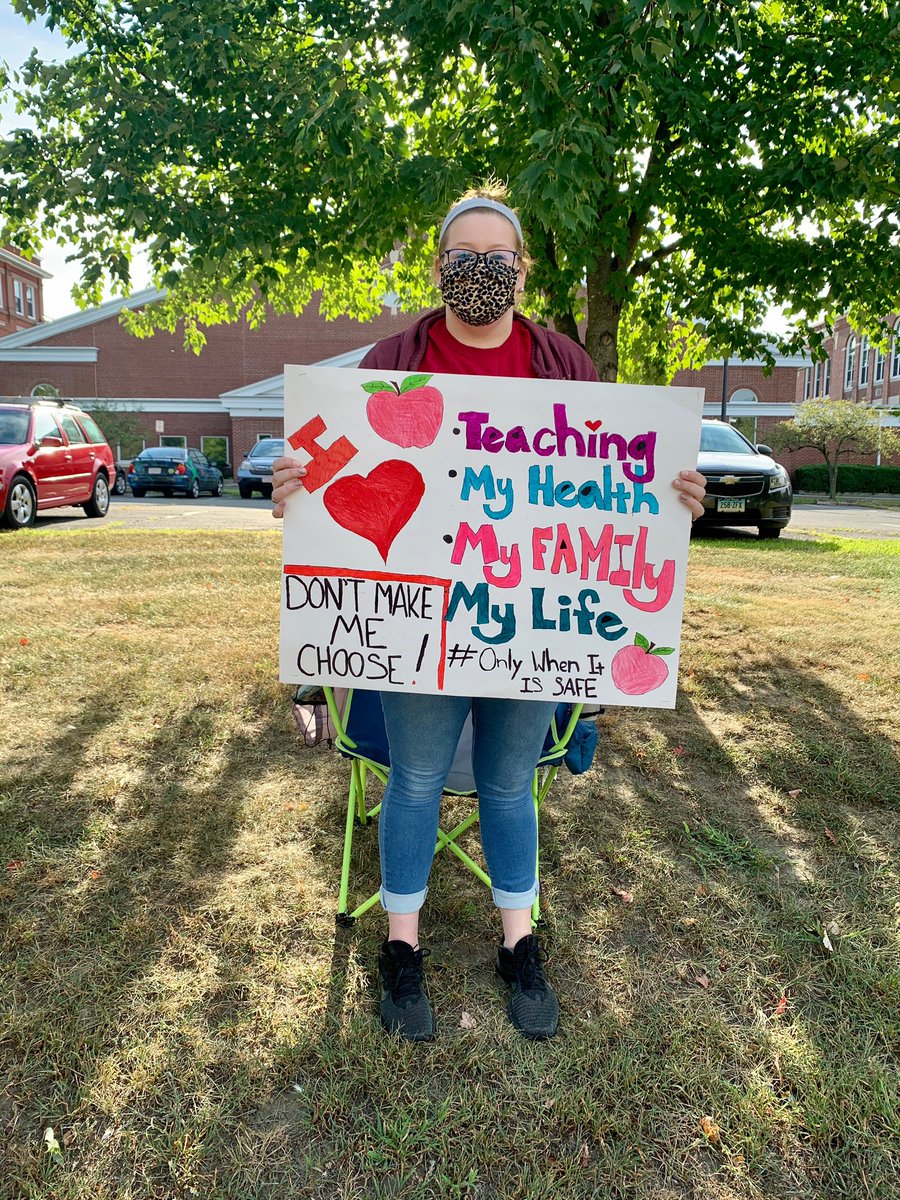 I
• Teaching
• My Health
• My FAMily
My Life
DON'T MAKE
ME
CHOOSE!
#Only When It
IS SAFE